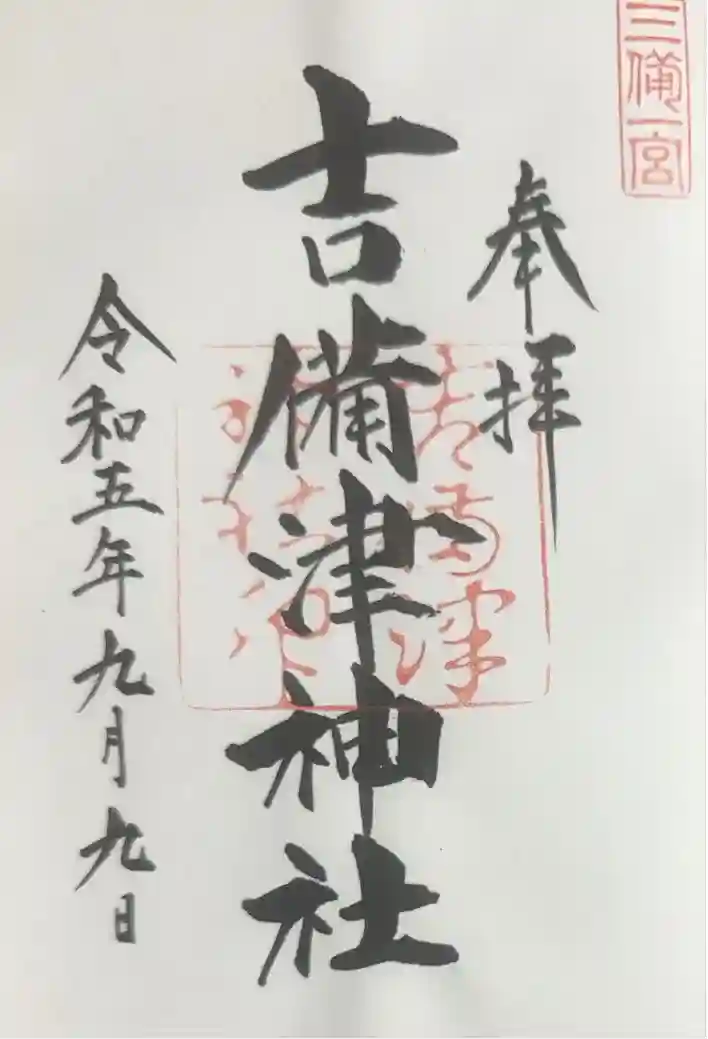 三備一宮
奉拝
吉備津神社
令和五年九月九日
吉備津